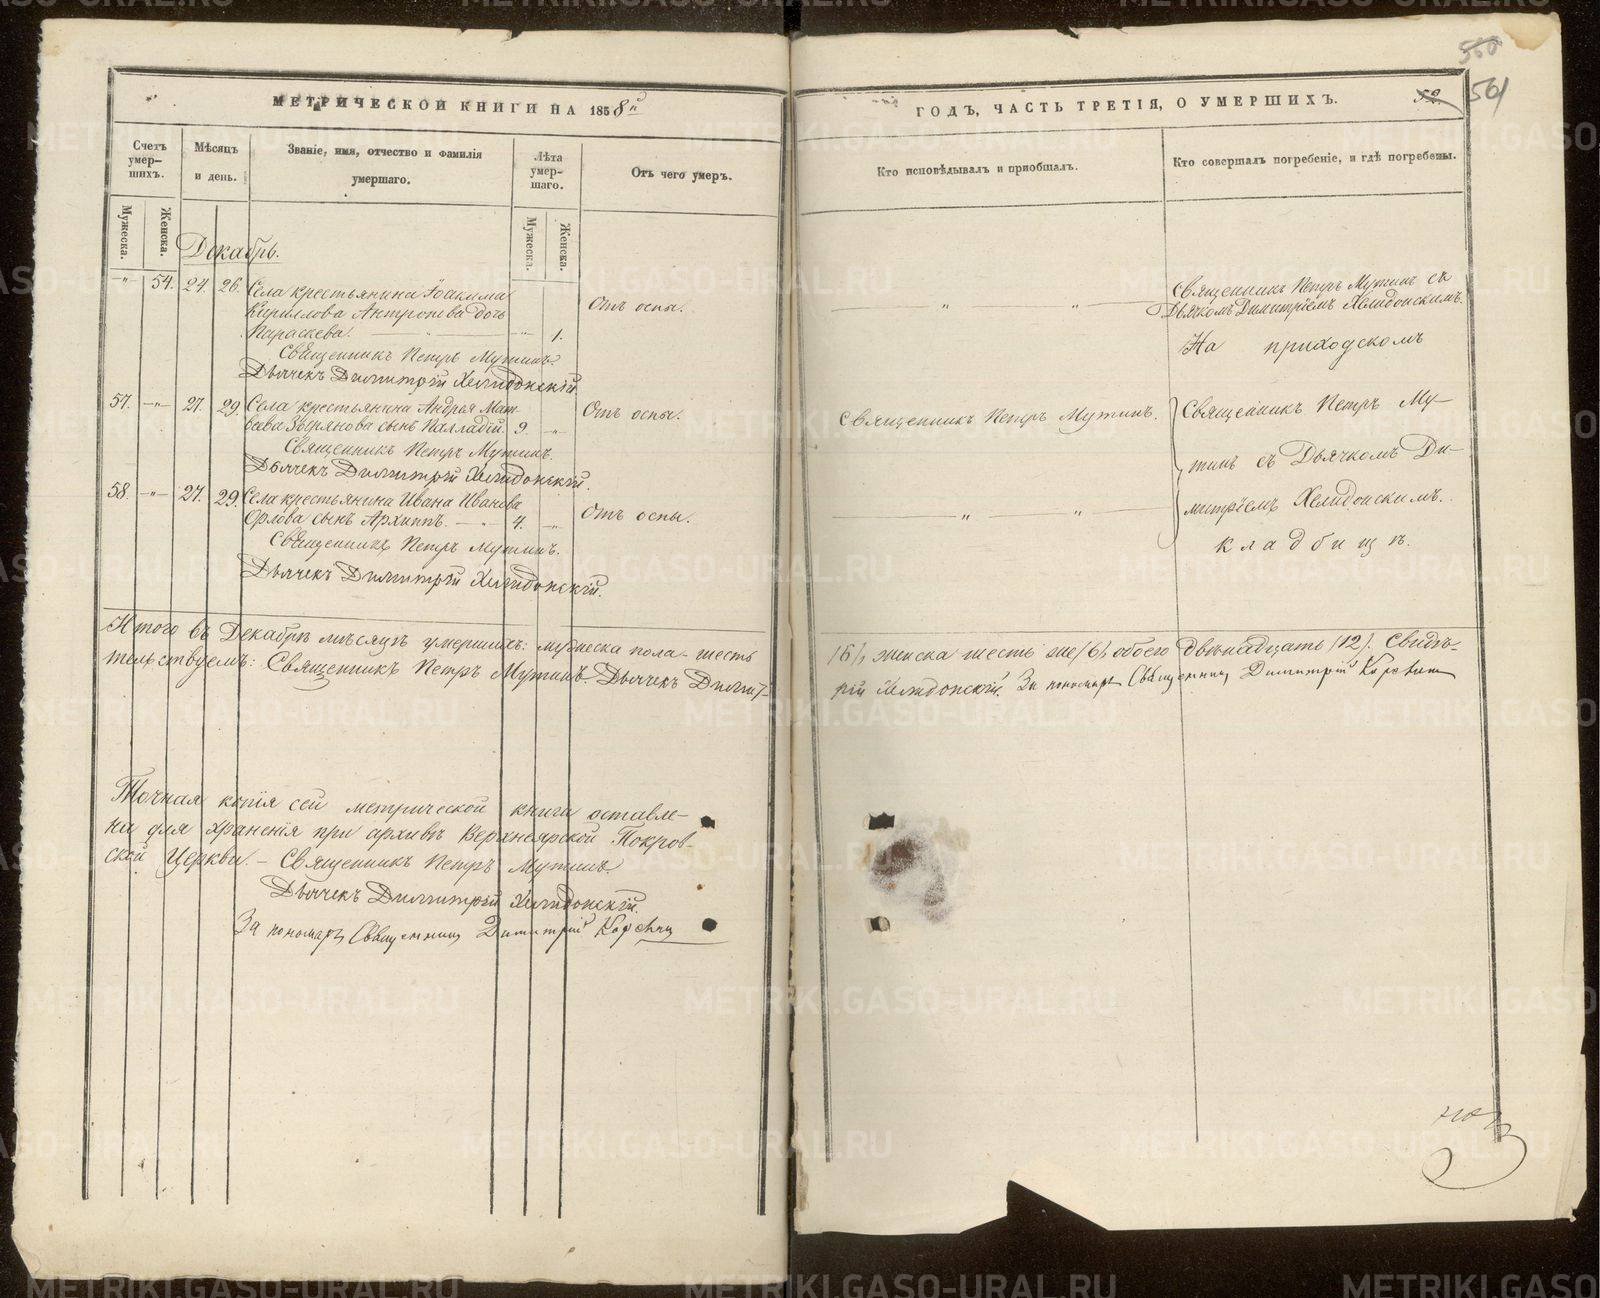 МЕТРИЧЕСКОЙ КНИГИ НА 1858й
Счетъ умер-
шихъ.
Мужеска.
Женска.
Мѣсяцъ
и день.
Званіе, имя, отчество и фамилія
умершаго.
Лѣта
умер-
шаго.
Мужеска.
Женска.
Отъ чего умеръ.
Декабрь.
-"- 54. 24. 26. Села крестьянина Іоакима
Кириллова Антропова дочь
Параскева. -"- 1.
Отъ оспы.
Священникъ Петръ Мутинъ.
Дьячекъ Димитрій Хелидонскій.
57. -"- 27. 29. Села крестьянина Андрея Мат-
вѣева Звѣрянова сынъ Палладій. 9. -"-
Отъ оспы.
Священникъ Петръ Мутинъ.
Дьячекъ Димитрій Хелидонскій.
58. -"- 27. 29. Села крестьянина Ивана Иванова
Орлова сынъ Архиппъ. -"- 4. -"-
Отъ оспы.
Священникъ Петръ Мутинъ.
Дьячекъ Димитрій Хелидонскій.
Итого въ Декабрѣ мѣсяцѣ умершихъ: мужеска пола шесть
тельствуемъ: Священникъ Петръ Мутинъ. Дьячекъ Димит-
Точная копія сей метрической книги оставле-
на для храненія при архивѣ Верхнеярской Покров-
ской Церкви. - Священникъ Петръ Мутинъ.
Дьячекъ Димитрій Хелидонскій.
За пономаря Священникъ Димитрій
550
ГОДЪ, ЧАСТЬ ТРЕТІЯ, О УМЕРШИХЪ.
52.
561
Кто исповѣдывалъ и пріобщалъ.
Кто совершалъ погребеніе, и гдѣ погребены.
" "
Священникъ Петръ Мутинъ съ
Дьячкомъ Димитріемъ Хелидонскимъ.
На приходскомъ
Священникъ Петръ Мутинъ.
Священникъ Петръ Му-
тинъ съ Дьячкомъ Ди-
" "
митріемъ Хелидонскимъ.
кладбищѣ.
/6/, женска шесть же /6/, обоего двѣнадцать /12/. Свидѣ-
рій Хелидонскій. За пономаря Священникъ Димитрій
METRIKI.GASO-URAL.RU